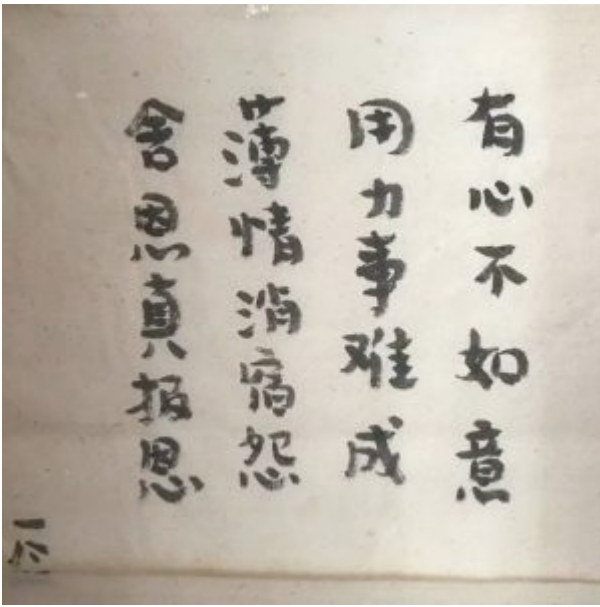 有心不如意
用力事难成
薄情消宿怨
舍恩真报恩